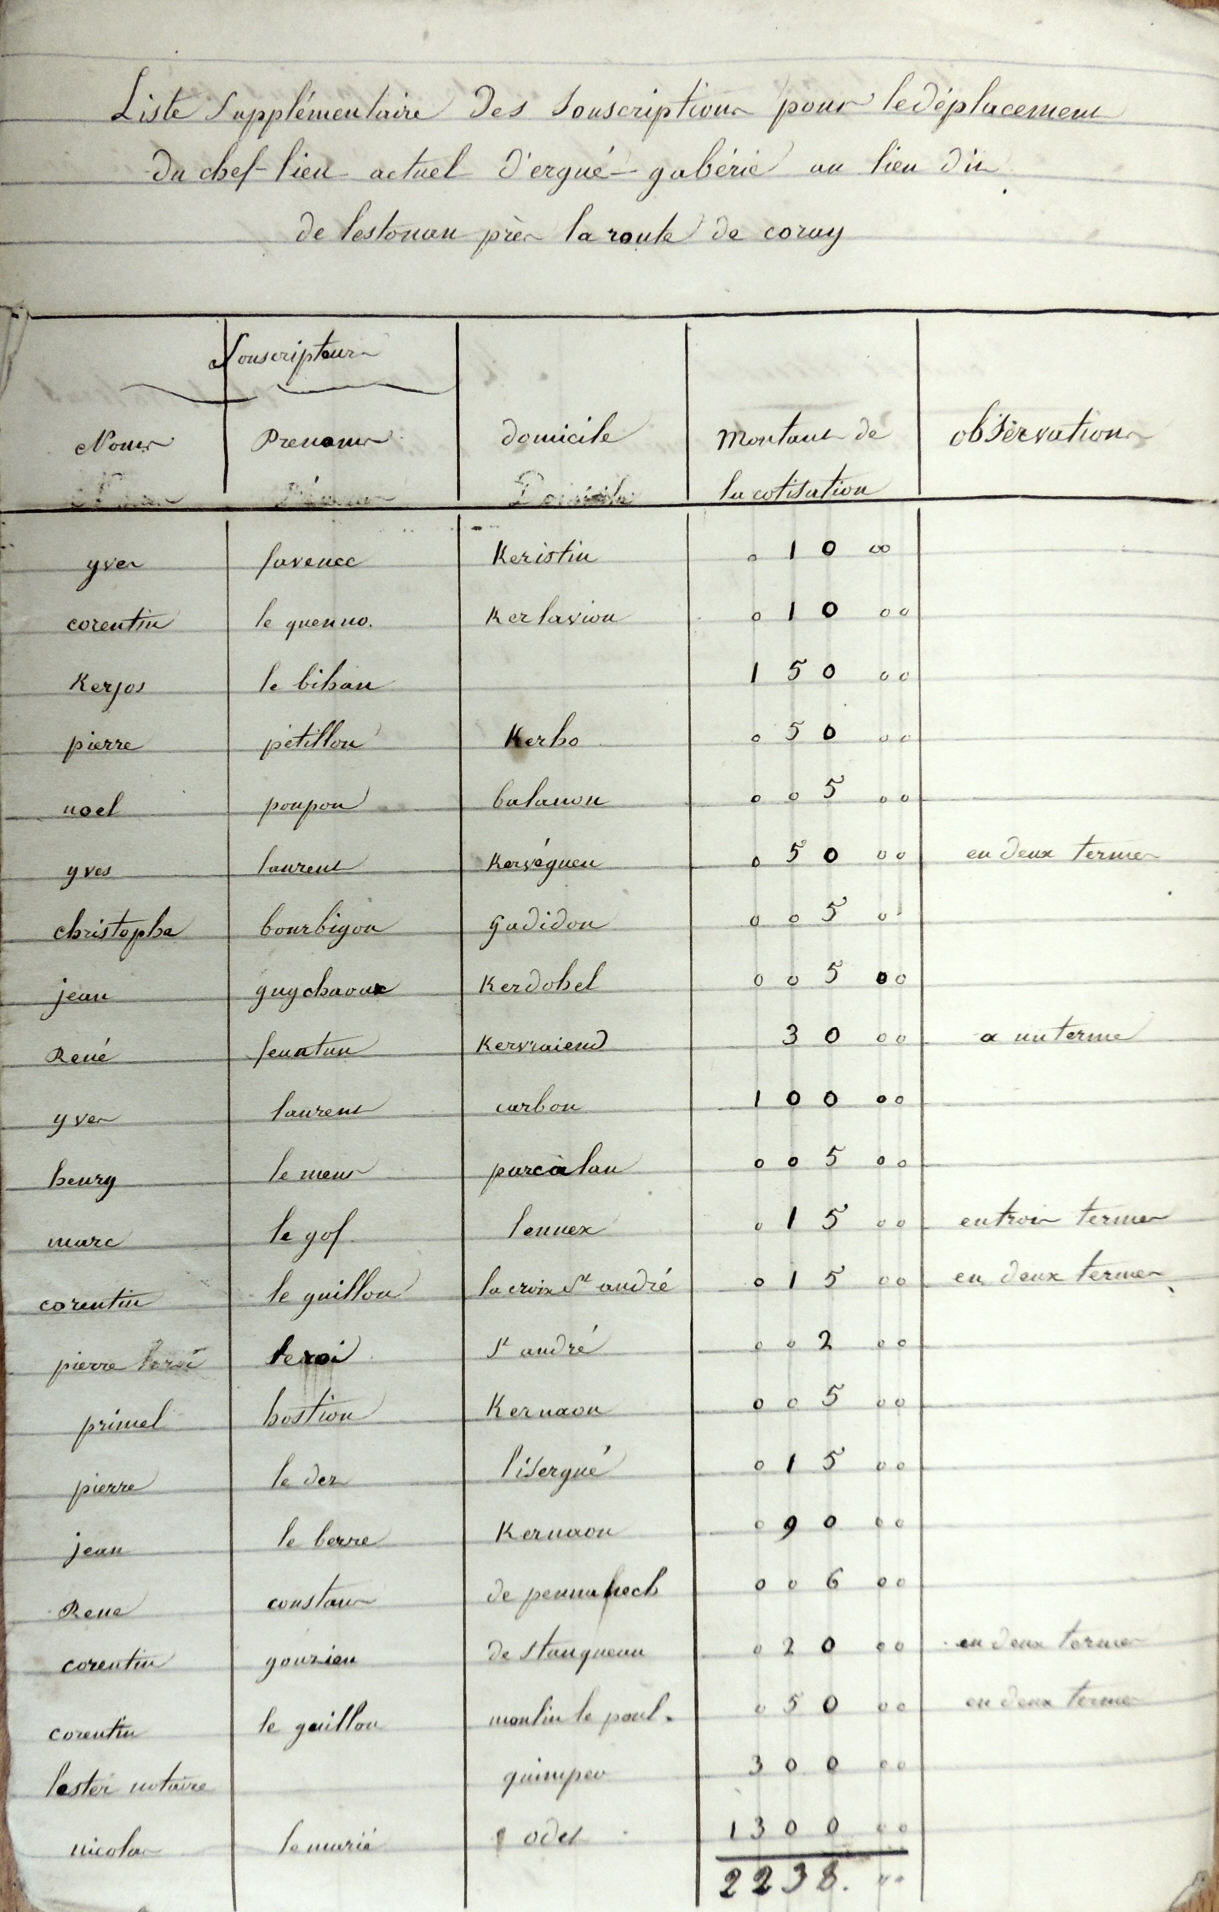 Liste Supplémentaire des Souscriptions pour le déplacement
du chef-lieu actuel d'ergué-gabéric au lieu dit
de lestonan près la route de coray
Souscripteurs
Noms Prenoms domicile Montant de observations
la cotisation
yves favenec Keristin 0 10 00
corentin le quenno. Kerlavion 0 10 00
Kerjos le bihan 1 50 00
pierre petillon Kerho 0 50 00
noel poupon balanon 0 0 5 00
yves laurent Kervéguen 0 50 00 en deux termes
christophe bourbigon gadidon 0 0 5 0
jean guychaoux Kerdohel 0 0 5 00
René feuatun Kervraiend 30 00 a un terme
yves laurent carbon 1 0 0 00
henry le meur parc a lan 0 0 5 00
marc le gof lennex 0 15 00 en trois termes
corentin le guillou la croix St andré 0 15 00 en deux termes
pierre leroi St andré 0 0 2 00
primel bostiou Kernaon 0 0 5 00
pierre le der lisergué 0 15 00
jean le berre Kernaon 0 90 00
Rene constans de pennahech 0 0 6 00
corentin gourien de stanqueau 0 20 00 en deux termes
corentin le guillou moulin le poul. 0 50 00 en deux termes
lester notaire quimper 3 0 0 00
nicolas le marié odet 1300 00
2238. 00